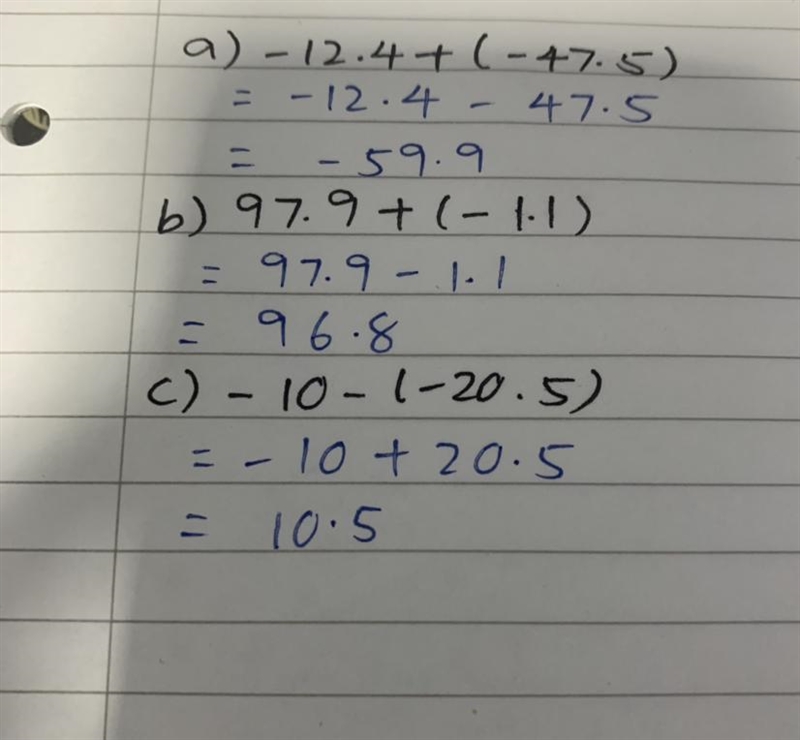 a) -12.4+(-47.5)
= -12.4 - 47.5
= -59.9
b) 97.9+(-1.1)
= 97.9 - 1.1
= 96.8
c) -10-(-20.5)
= -10 + 20.5
= 10.5